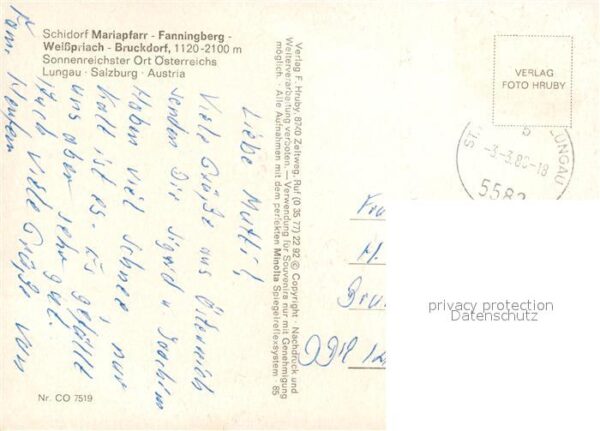 Schidorf Mariapfarr - Fanningberg -
Weißpriach - Bruckdorf, 1120-2100 m
Sonnenreichster Ort Österreichs
Lungau · Salzburg · Austria
Liebe Mutti!
Viele Grüße aus Österreich
senden Dir Sigrid u. Joachim
Haben viel Schnee nur
kalt ist es. Es gefällt
uns aber sehr gut.
Auch viele Grüße von
Fam.
Nr. CO 7519
Verlag F. Hruby, 8740 Zeltweg, Ruf (0 35 77) 22 92 © Copyright · Nachdruck und
Weiterverarbeitung verboten. — Verwendung für Souvenirs nur mit Genehmigung
möglich. · Alle Aufnahmen mit dem perfekten Minolta Spiegelreflexsystem · 85
VERLAG
FOTO HRUBY
ST. LUNGAU
-3-3.86-18
5582
DDR
privacy protection
Datenschutz